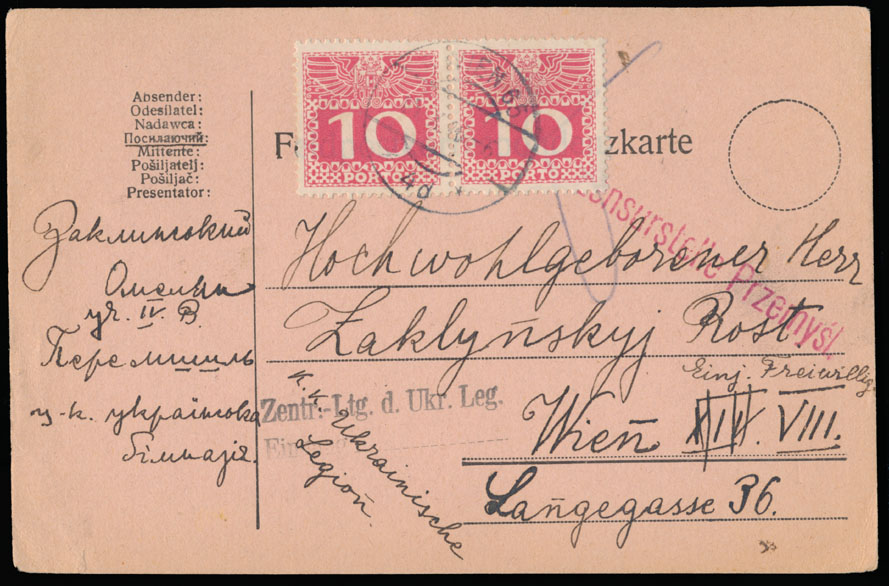 Absender:
Odesílatel:
Nadawca:
Посилаючий:
Mittente:
Pošiljatelj:
Pošiljač:
Presentator:
10 10
PORTO PORTO
4d
zkarte
Zensurstelle Przemyśl.
Заклинський
Омелян
уч. IV. B.
Перемишль
ц-к. українська
гімназія.
Hochwohlgeborener Herr
Zaklyńskyj Rost
Einj. Freiwillig.
Wien XIII. VIII.
Langegasse 36.
K. k. Ukrainische
Legion.
Zentr.-Ltg. d. Ukr. Leg.